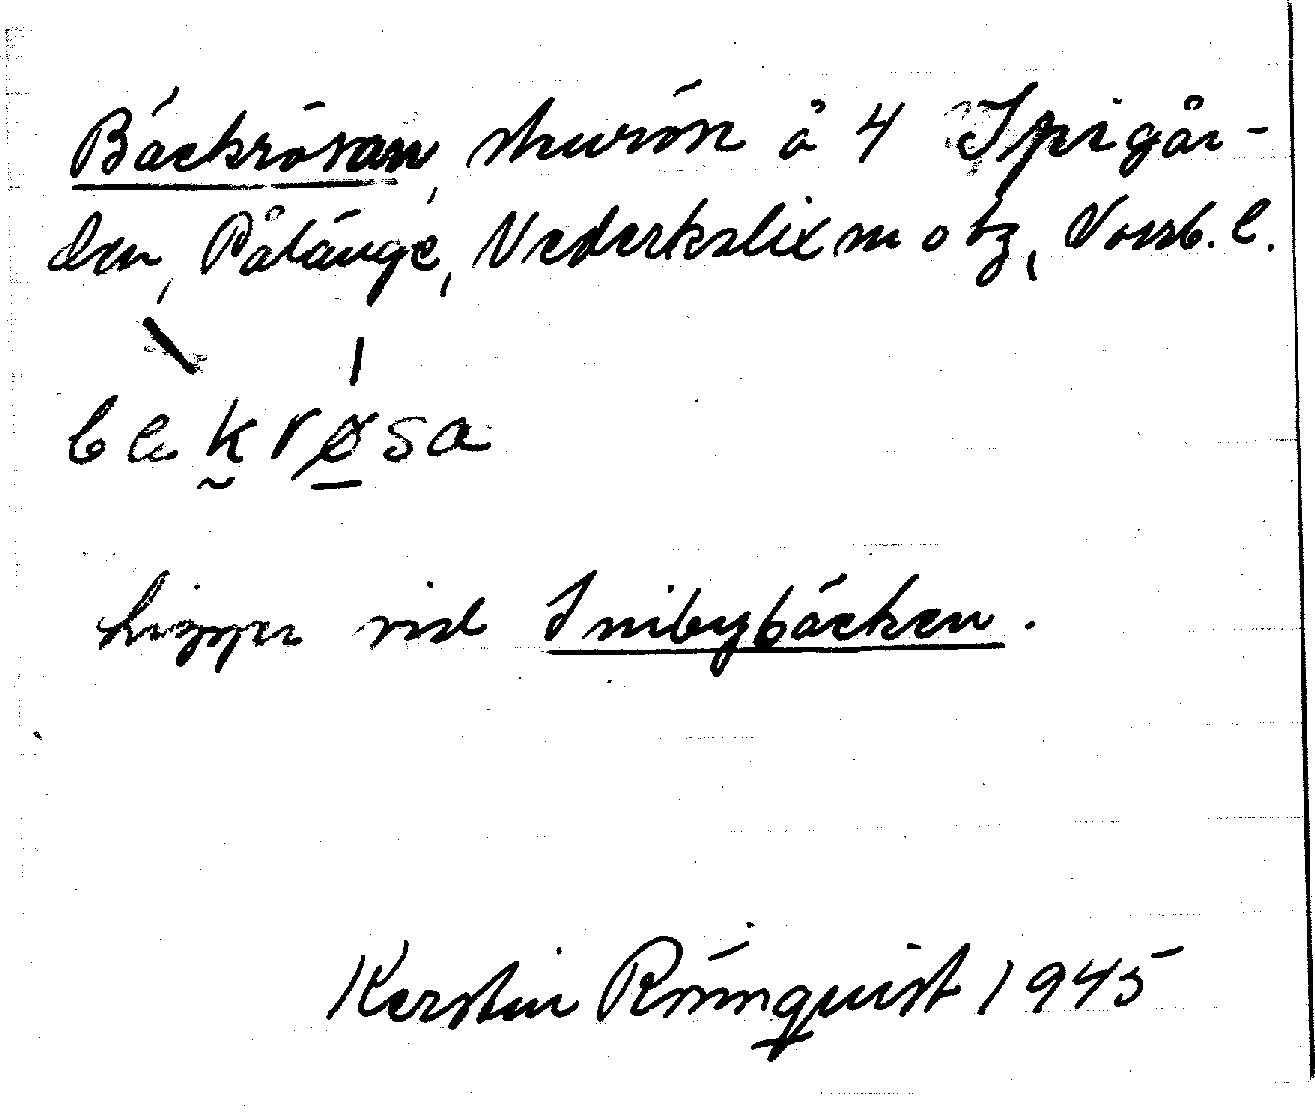 Bäckrösan, skurön å 4 Spigår-
den, Pålänge, Nederkalix m o tg, Norrb. l.
bekrøsa
Ligger vid Snibybäcken.
Kerstin Rönnquist 1945